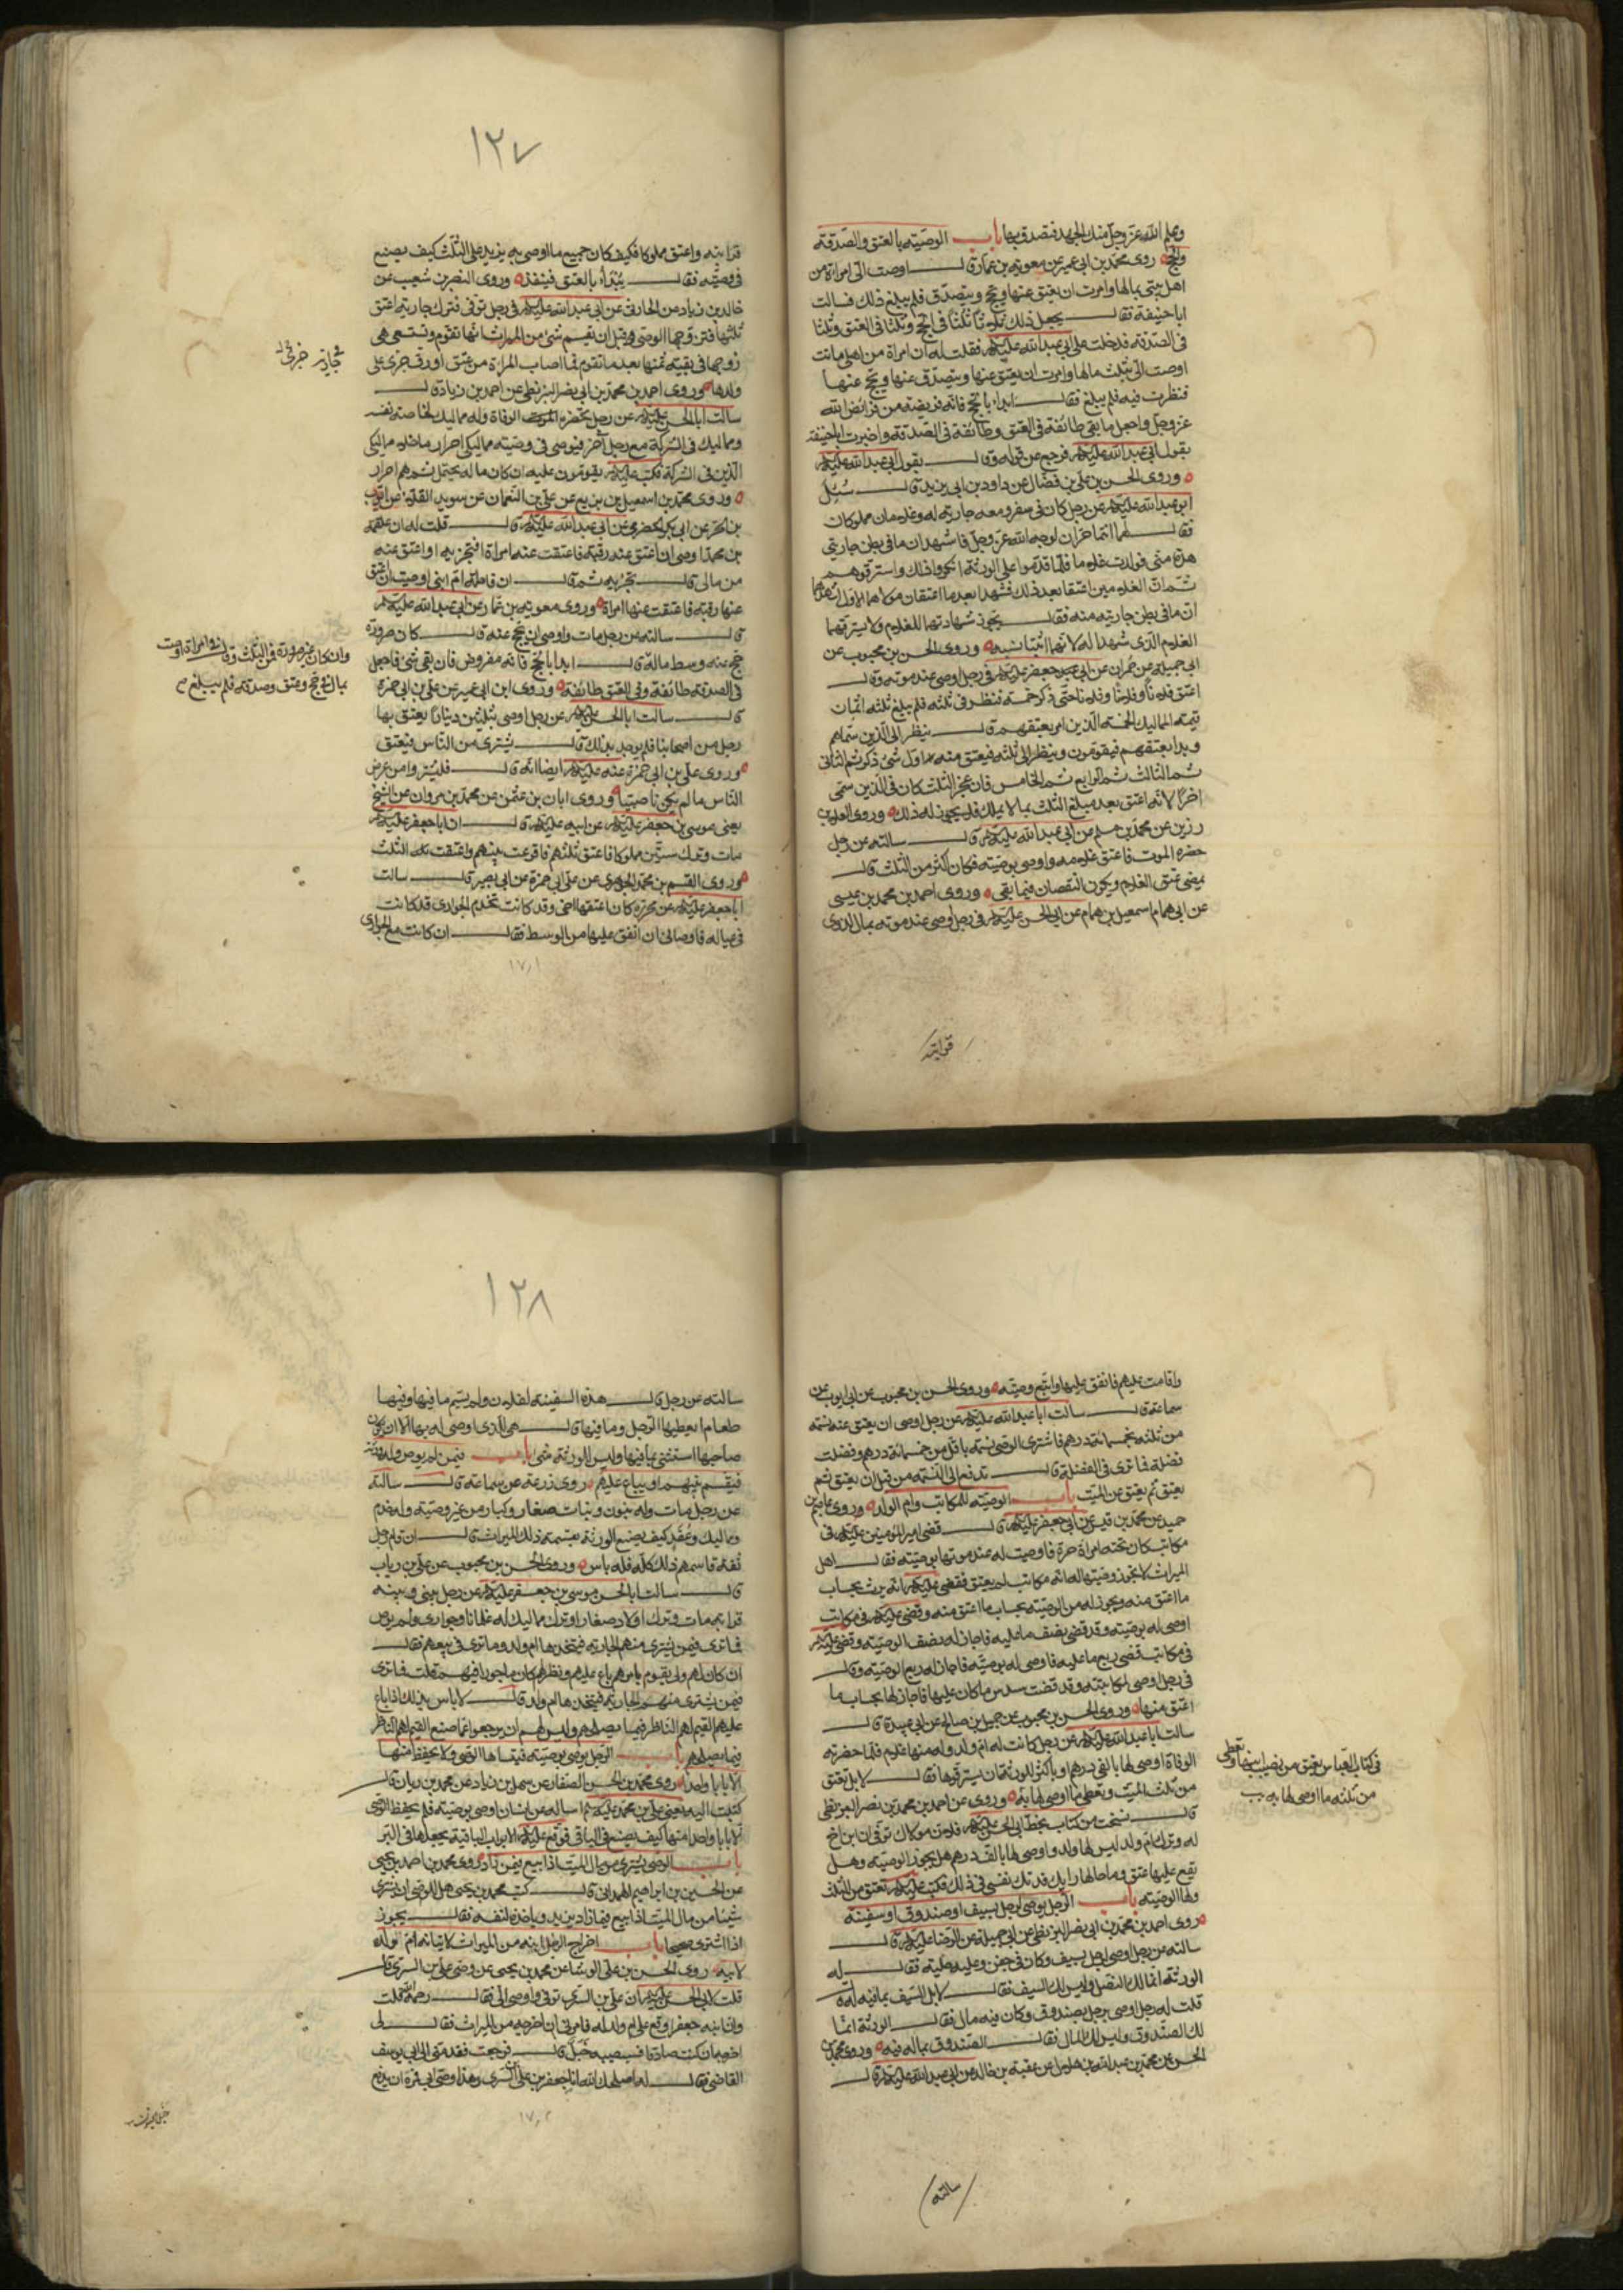 وعلم الله عز وجل منك الجهد فتصدق بها باب الوصية بالعتق والصدقة
والحج روى محمد بن ابي عمير عن معوية بن عمار قال اوصت الى امراة من
اهل بيتى بمالها وامرت ان يعتق عنها ويحج ويتصدق فلم يبلغ ذلك فسالت
ابا حنيفة فقال يجعل ذلك ثلاثا ثلثا فى الحج وثلثا فى العتق وثلثا
فى الصدقة فدخلت على ابى عبد الله عليه السلام فقلت له ان امراة من اهلى ماتت
اوصت الى بثلث مالها وامرت ان يعتق عنها ويتصدق عنها ويحج عنها
فنظرت فيه فلم يبلغ فقال ابدا بالحج فانه فريضة من فرائض الله
عز وجل واجعل ما بقى طائفة فى العتق وطائفة فى الصدقة واخبرت ابا حنيفة
بقول ابى عبد الله عليه السلام فرجع عن قوله وقال بقول ابى عبد الله عليه السلام
وروى الحسن بن على بن فضال عن داود بن ابى يزيد قال سئل
ابو عبد الله عليه السلام عن رجل كان فى سفر ومعه جارية له وغلامان مملوكان
فقال لهما انتما حران لوجه الله عز وجل فاشهدا ان ما فى بطن جاريتى
هذه منى فولدت غلاما فلما قدموا على الورثة انكروا ذلك واسترقوهم
ثم ان الغلامين اعتقا بعد ذلك فشهدا بعد ما اعتقا ان مولاهما الاول اشهدهما
ان ما فى بطن جاريته منه فقال يجوز شهادتهما للغلام ولا يسترقهما
الغلام الذى شهدا له لانهما اثبتا نسبه وروى الحسن بن محبوب عن
ابى جميلة عن حمران عن ابى جعفر عليه السلام فى رجل اوصى عند موته وقال
اعتق فلانا وفلانا وفلانا حتى ذكر خمسة فنظر فى ثلثه فلم يبلغ ثلثه اثمان
قيمة المماليك الخمسة الذين امر بعتقهم قال ينظر الى الذين سماهم
وبدا بعتقهم فيقومون وينظر الى ثلثه فيعتق منه اول شئ ذكر ثم الثانى
ثم الثالث ثم الرابع ثم الخامس فان عجز الثلث كان فى الذين سمى
اخرا لانه اعتق بعد مبلغ الثلث بما لا يملك فلا يجوز له ذلك وروى العلا بن
رزين عن محمد بن مسلم عن ابى عبد الله عليه السلام قال سالته عن رجل
حضره الموت فاعتق غلامه واوصى بوصيته فكان اكثر من الثلث قال
يمضى عتق الغلام ويكون النقصان فيما بقى وروى احمد بن محمد بن عيسى
عن ابى همام اسمعيل بن همام عن ابى الحسن عليه السلام فى رجل اوصى عند موته بمال لذوى
قرابته
١٢٧
قرابته واعتق مملوكا فكيف كان جميع ما اوصى به يزيد على الثلث كيف يصنع
فى وصيته فقال يبدأ بالعتق فينفذه وروى النضر بن شعيب عن
خالد بن زياد عن الحارثى عن ابى عبد الله عليه السلام فى رجل توفى فترك جارية اعتق
ثلثها فتزوجها الوصى قبل ان يقسم شئ من الميراث انها تقوم وتستسعى هى
زوجها فى بقية ثمنها بعد ما تقوم فما اصاب المراة من عتق او رق جرى على
ولدها وروى احمد بن محمد بن ابى نصر البزنطى عن احمد بن زياد قال
سالت ابا الحسن عليه السلام عن رجل يحضره الوفاة وله مماليك لخاصة نفسه
ومماليك فى الشركة مع رجل آخر فيوصى فى وصيته مماليكى احرار ما خلا مماليكى
الذين فى الشركة فكتب عليه السلام يقومون عليه ان كان ماله يحتمل ثم هم احرار
وروى محمد بن اسمعيل بن بزيع عن على بن النعمان عن سويد القلا عن ايوب
بن الحر عن ابى بكر الحضرمى عن ابى عبد الله عليه السلام قال قلت له ان علقمة
بن محمد اوصى ان اعتق عنه رقبة فاعتقت عنه امراة افتجزيه او اعتق عنه
من مالى قال تجزيه ثم قال ان فاطمة ام ابنى اوصت ان اعتق
عنها رقبة فاعتقت عنها امراة وروى معوية بن عمار عن ابى عبد الله عليه السلام
قال سالته عن رجل مات واوصى ان يحج عنه قال كان صرورة
حج عنه وسط ماله قال ابدا بالحج فانه مفروض فان بقى شئ فاجعل
فى الصدقة طائفة وفى العتق طائفة وروى ابن ابى عمير عن على بن ابى حمزة
قال سالت ابا الحسن عليه السلام عن رجل اوصى بثلثين دينارا يعتق بها
رجل من اصحابنا فلم يوجد بذلك قال يشترى من الناس فيعتق
وروى على بن ابى حمزة عنه عليه السلام ايضا انه قال فليشتروا من عرض
الناس ما لم يكن ناصبيا وروى ابان بن عثمن عن محمد بن مروان عن الشيخ
يعنى موسى بن جعفر عليه السلام عن ابيه عليه السلام قال ان ابا جعفر عليه السلام
مات وترك ستين مملوكا فاعتق ثلثهم فاقرعت بينهم واعتقت الثلث
وروى القسم بن محمد الجوهرى عن على بن ابى حمزة عن ابى بصير قال سالت
ابا جعفر عليه السلام عن محررة كان اعتقها اخى وقد كانت تخدم الجوارى قد كانت
فى عياله فاوصانى ان انفق عليها من الوسط فقال ان كانت مع الجوارى
وان كان غير صرورة فمن الثلث وقال فى امراة اوصت
بمال فى حج وعتق وصدقة فلم يبلغ
واقامت عليهم فانفق عليها واتبع وصيته وروى الحسن بن محبوب عن ابى ايوب عن
سماعة قال سالت ابا عبد الله عليه السلام عن رجل اوصى ان يعتق عنه نسمة
من ثلثه بخمسمائة درهم فاشترى الوصى نسمة باقل من خمسمائة درهم وفضلت
فضلة فما ترى فى الفضلة قال تدفع الى النسمة من قبل ان يعتق ثم
يعتق عن الميت باب الوصية للمكاتب وام الولد وروى عاصم بن
حميد عن محمد بن قيس عن ابى جعفر عليه السلام قال قضى امير المومنين عليه السلام فى
مكاتب كان تحته امراة حرة فاوصت له عند موتها بوصية فقال اهل
الميراث لا تجوز وصيتها له انه مكاتب لم يعتق فقضى عليه السلام انه يرث بحساب
ما اعتق منه ويجوز له من الوصية بحساب ما اعتق منه وقضى عليه السلام فى مكاتب
اوصى له بوصية وقد قضى نصف ما عليه فاجاز له نصف الوصية وقضى عليه السلام
فى مكاتب قضى ربع ما عليه فاوصى له بوصية فاجاز له ربع الوصية وقال
فى رجل اوصى لمكاتبته وقد قضت سدس ما كان عليها فاجاز لها بحساب ما
اعتق منها وروى الحسن بن محبوب عن جميل بن صالح عن ابى عبيدة قال
سالت ابا عبد الله عليه السلام عن رجل كانت له ام ولد وله منها غلام فلما حضرته
الوفاة اوصى لها بالفى درهم او باكثر للورثة ان يسترقوها فقال لا بل تعتق
من ثلث الميت وتعطى ما اوصى لها به وروى عن احمد بن محمد بن ابى نصر البزنطى
قال نسخت من كتاب بخط ابى الحسن عليه السلام فلان مولاك توفى ابن اخ
له وترك ام ولد ليس لها ولد واوصى لها بالف درهم هل يجوز الوصية وهل
يقع عليها عتق وما حالها رايك فدتك نفسى فى ذلك فكتب عليه السلام تعتق من الثلث
ولها الوصية باب الرجل يوصى لرجل بسيف او صندوق او سفينة
روى احمد بن محمد بن ابى نصر البزنطى عن ابى جميلة عن الرضا عليه السلام قال
سالته عن رجل اوصى لرجل بسيف وكان فى جفن وعليه حلية فقال له
الورثة انما لك النصل وليس لك السيف فقال لا بل السيف بما فيه له
قلت له رجل اوصى لرجل بصندوق وكان فيه مال فقال الورثة انما
لك الصندوق وليس لك المال فقال الصندوق بما له فيه وروى محمد بن
الحسين عن محمد بن عبد الله بن هلال عن عقبة بن خالد عن ابى عبد الله عليه السلام قال
فى كتاب العباس يعتق من نصيب ابنها وتعطى
من ثلثه ما اوصى لها به
سالته
١٢٨
سالته عن رجل قال هذه السفينة لفلان ولم يسم ما فيها وفيها
طعام ايعطيها الرجل وما فيها قال هى للذى اوصى له بها الا ان يكون
صاحبها استثنى بما فيها وليس للورثة شئ باب فيمن لم يوص وله ورثة
فيقسم بينهم او يباع عليهم روى زرعة عن سماعة قال سالته
عن رجل مات وله بنون وبنات صغار وكبار من غير وصية وله خدم
ومماليك وعقد كيف يصنع الورثة بقسمة ذلك الميراث قال ان قام رجل
ثقة قاسمهم ذلك كله فلا باس وروى الحسن بن محبوب عن على بن رياب
قال سالت ابا الحسن موسى بن جعفر عليه السلام عن رجل بينى وبينه
قرابة مات وترك اولاد صغار وترك مماليك له غلمانا وجوارى ولم يوص
فما ترى فيمن يشترى منهم الجارية فيتخذها ام ولد وما ترى فى بيعهم فقال
ان كان لهم ولى يقوم بامرهم باع عليهم ونظر لهم كان ماجورا فيهم قلت فما ترى
فيمن يشترى منهم الجارية فيتخذها ام ولد قال لا باس بذلك اذا باع
عليهم القيم لهم الناظر فيما يصلحهم وليس لهم ان يرجعوا عما صنع القيم لهم الناظر
فيما يصلحهم باب الرجل يوصى بوصية فينساها الوصى ولا يحفظ منها
الا بابا واحدا روى محمد بن الحسن الصفار عن سهل بن زياد عن محمد بن ريان قال
كتبت اليه يعنى على بن محمد عليه السلام اساله عن انسان اوصى بوصية فلم يحفظ الوصى
الا بابا واحدا منها كيف يصنع فى الباقى فوقع عليه السلام الابواب الباقية يجعلها فى البر
باب الوصى يشترى من مال الميت اذا بيع فيمن زاد روى محمد بن احمد بن يحيى
عن الحسين بن ابراهيم الهمدانى قال كتب محمد بن يحيى هل للوصى ان يشترى
شيئا من مال الميت اذا بيع فيما زاد يزيد وياخذه لنفسه فقال يجوز
اذا اشترى صحيحا باب اخراج الرجل ابنه من الميراث لاتيانه ام ولد
لابيه روى الحسن بن على الوشا عن محمد بن يحيى عن وصى على بن السرى قال
قلت لابى الحسن عليه السلام ان على بن السرى توفى واوصى الى فقال رحمه الله قلت
وان ابنه جعفرا وقع على ام ولد له فامرنى ان اخرجه من الميراث فقال لى
اخرجه ان كنت صادقا فسيصيبه خبل قال فرجعت فقدمنى الى ابى يوسف
القاضى فقال له اصلحك الله انا جعفر بن على السرى وهذا وصى ابى فمره ان يدفع